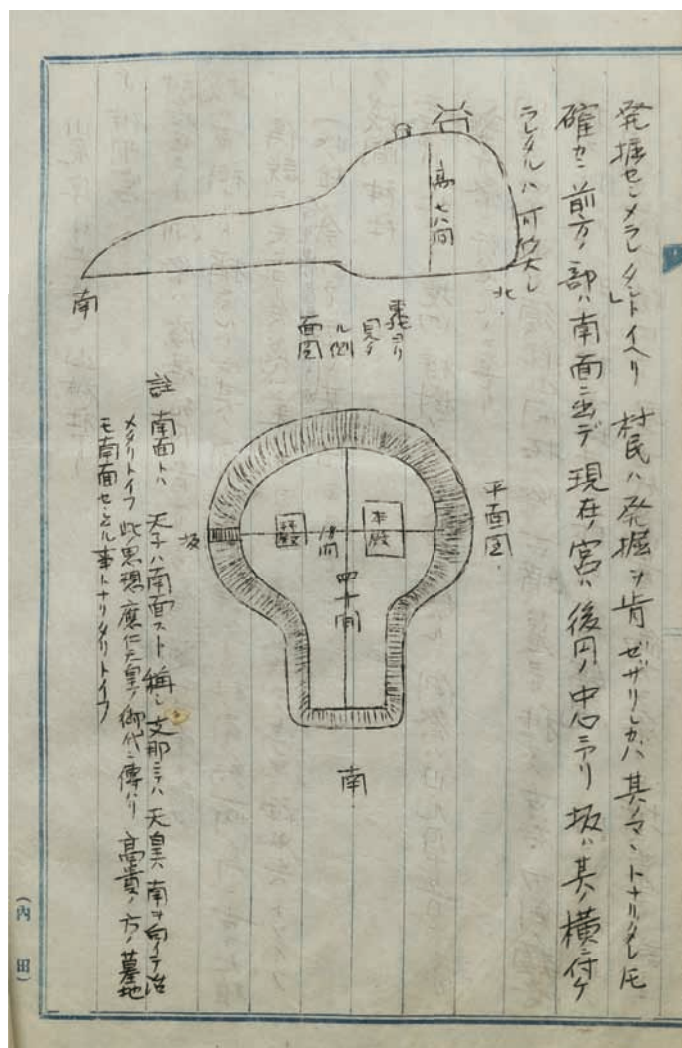 発掘セシメラレタシトイヘリ　村民ハ発掘ヲ肯ゼザリシカバ其ノマヽトナリタレ圧
確カニ前方ノ部ハ南面ニ出デ現在ノ宮ハ後円ノ中心ニアリ坂ハ其ノ横ニ付ケ
ラレタルハ可惜夫レ
高七八間
北
南
東北ヨリ
見タ
ル側
面図
平面図
本殿
拝殿
四十間
坂
南
註　南面トハ　天子ハ南面スト稱シ支那ニテハ天皇ハ南ヲ向イテ治
メタリトイフ此思想應仁天皇ノ御代ニ傳ハリ高貴ノ方ノ墓地
モ南面セシムル事トナリタリトイフ
(内田)